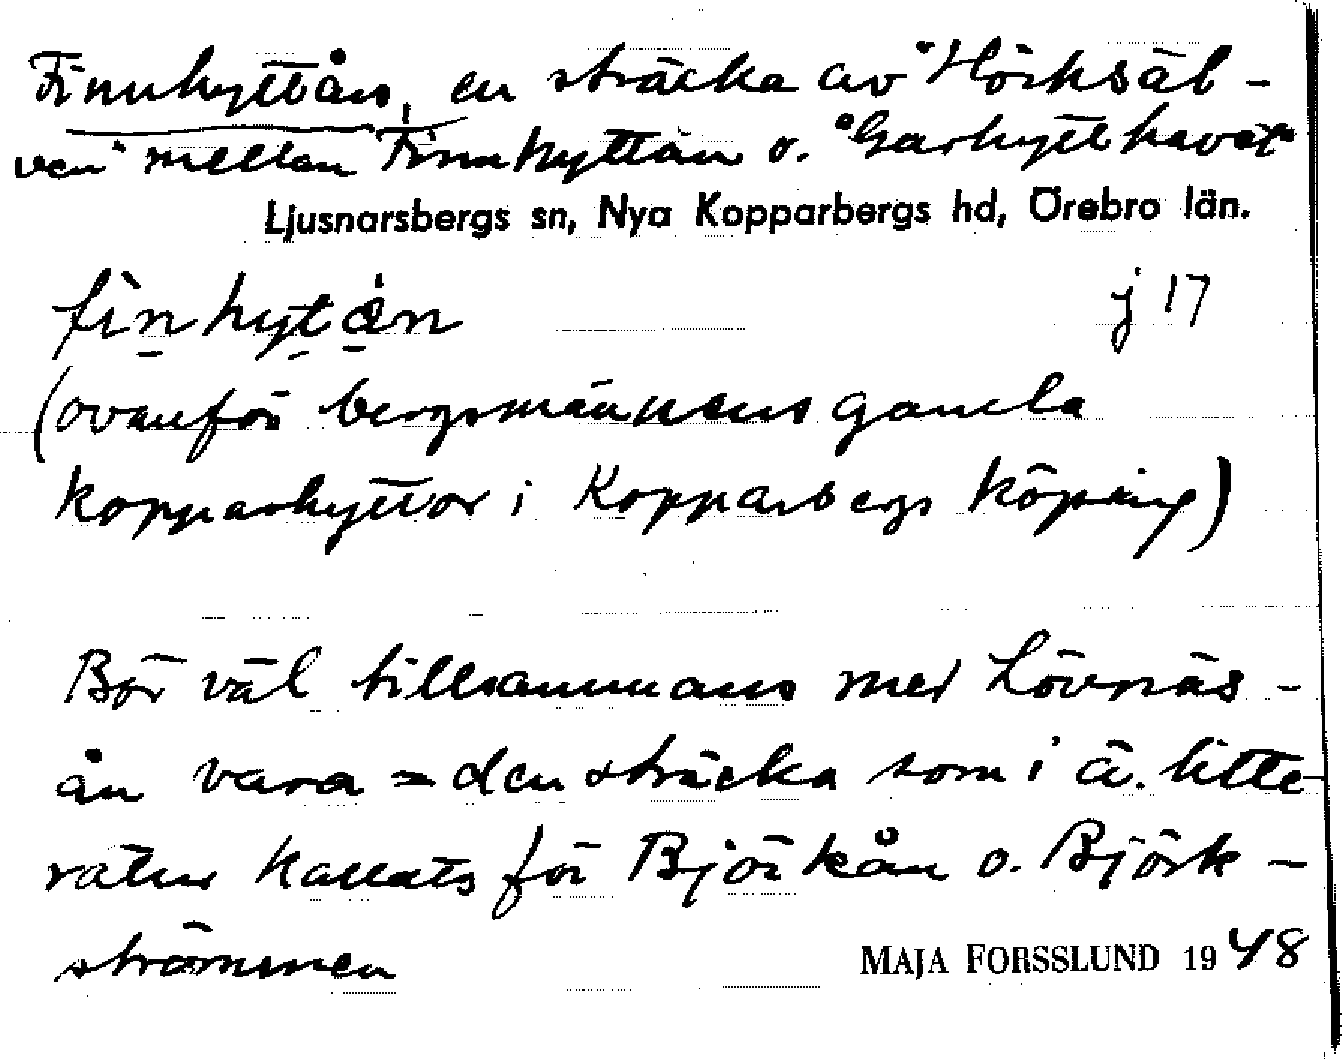 Finnhyttån, en sträcka av "Hörksäl-
ven" mellan Finnhyttan o. "Garhyttehavet"
Ljusnarsbergs sn, Nya Kopparbergs hd, Örebro län.
finhytån j 17
(ovanför bergsmännens gamla
kopparhyttor i Kopparbergs köping)
Bör väl tillsammans med Lövnäs-
ån vara = den sträcka som i ä. litte-
ratur kallats för Björkån o. Björk-
strömmen
MAJA FORSSLUND 1948